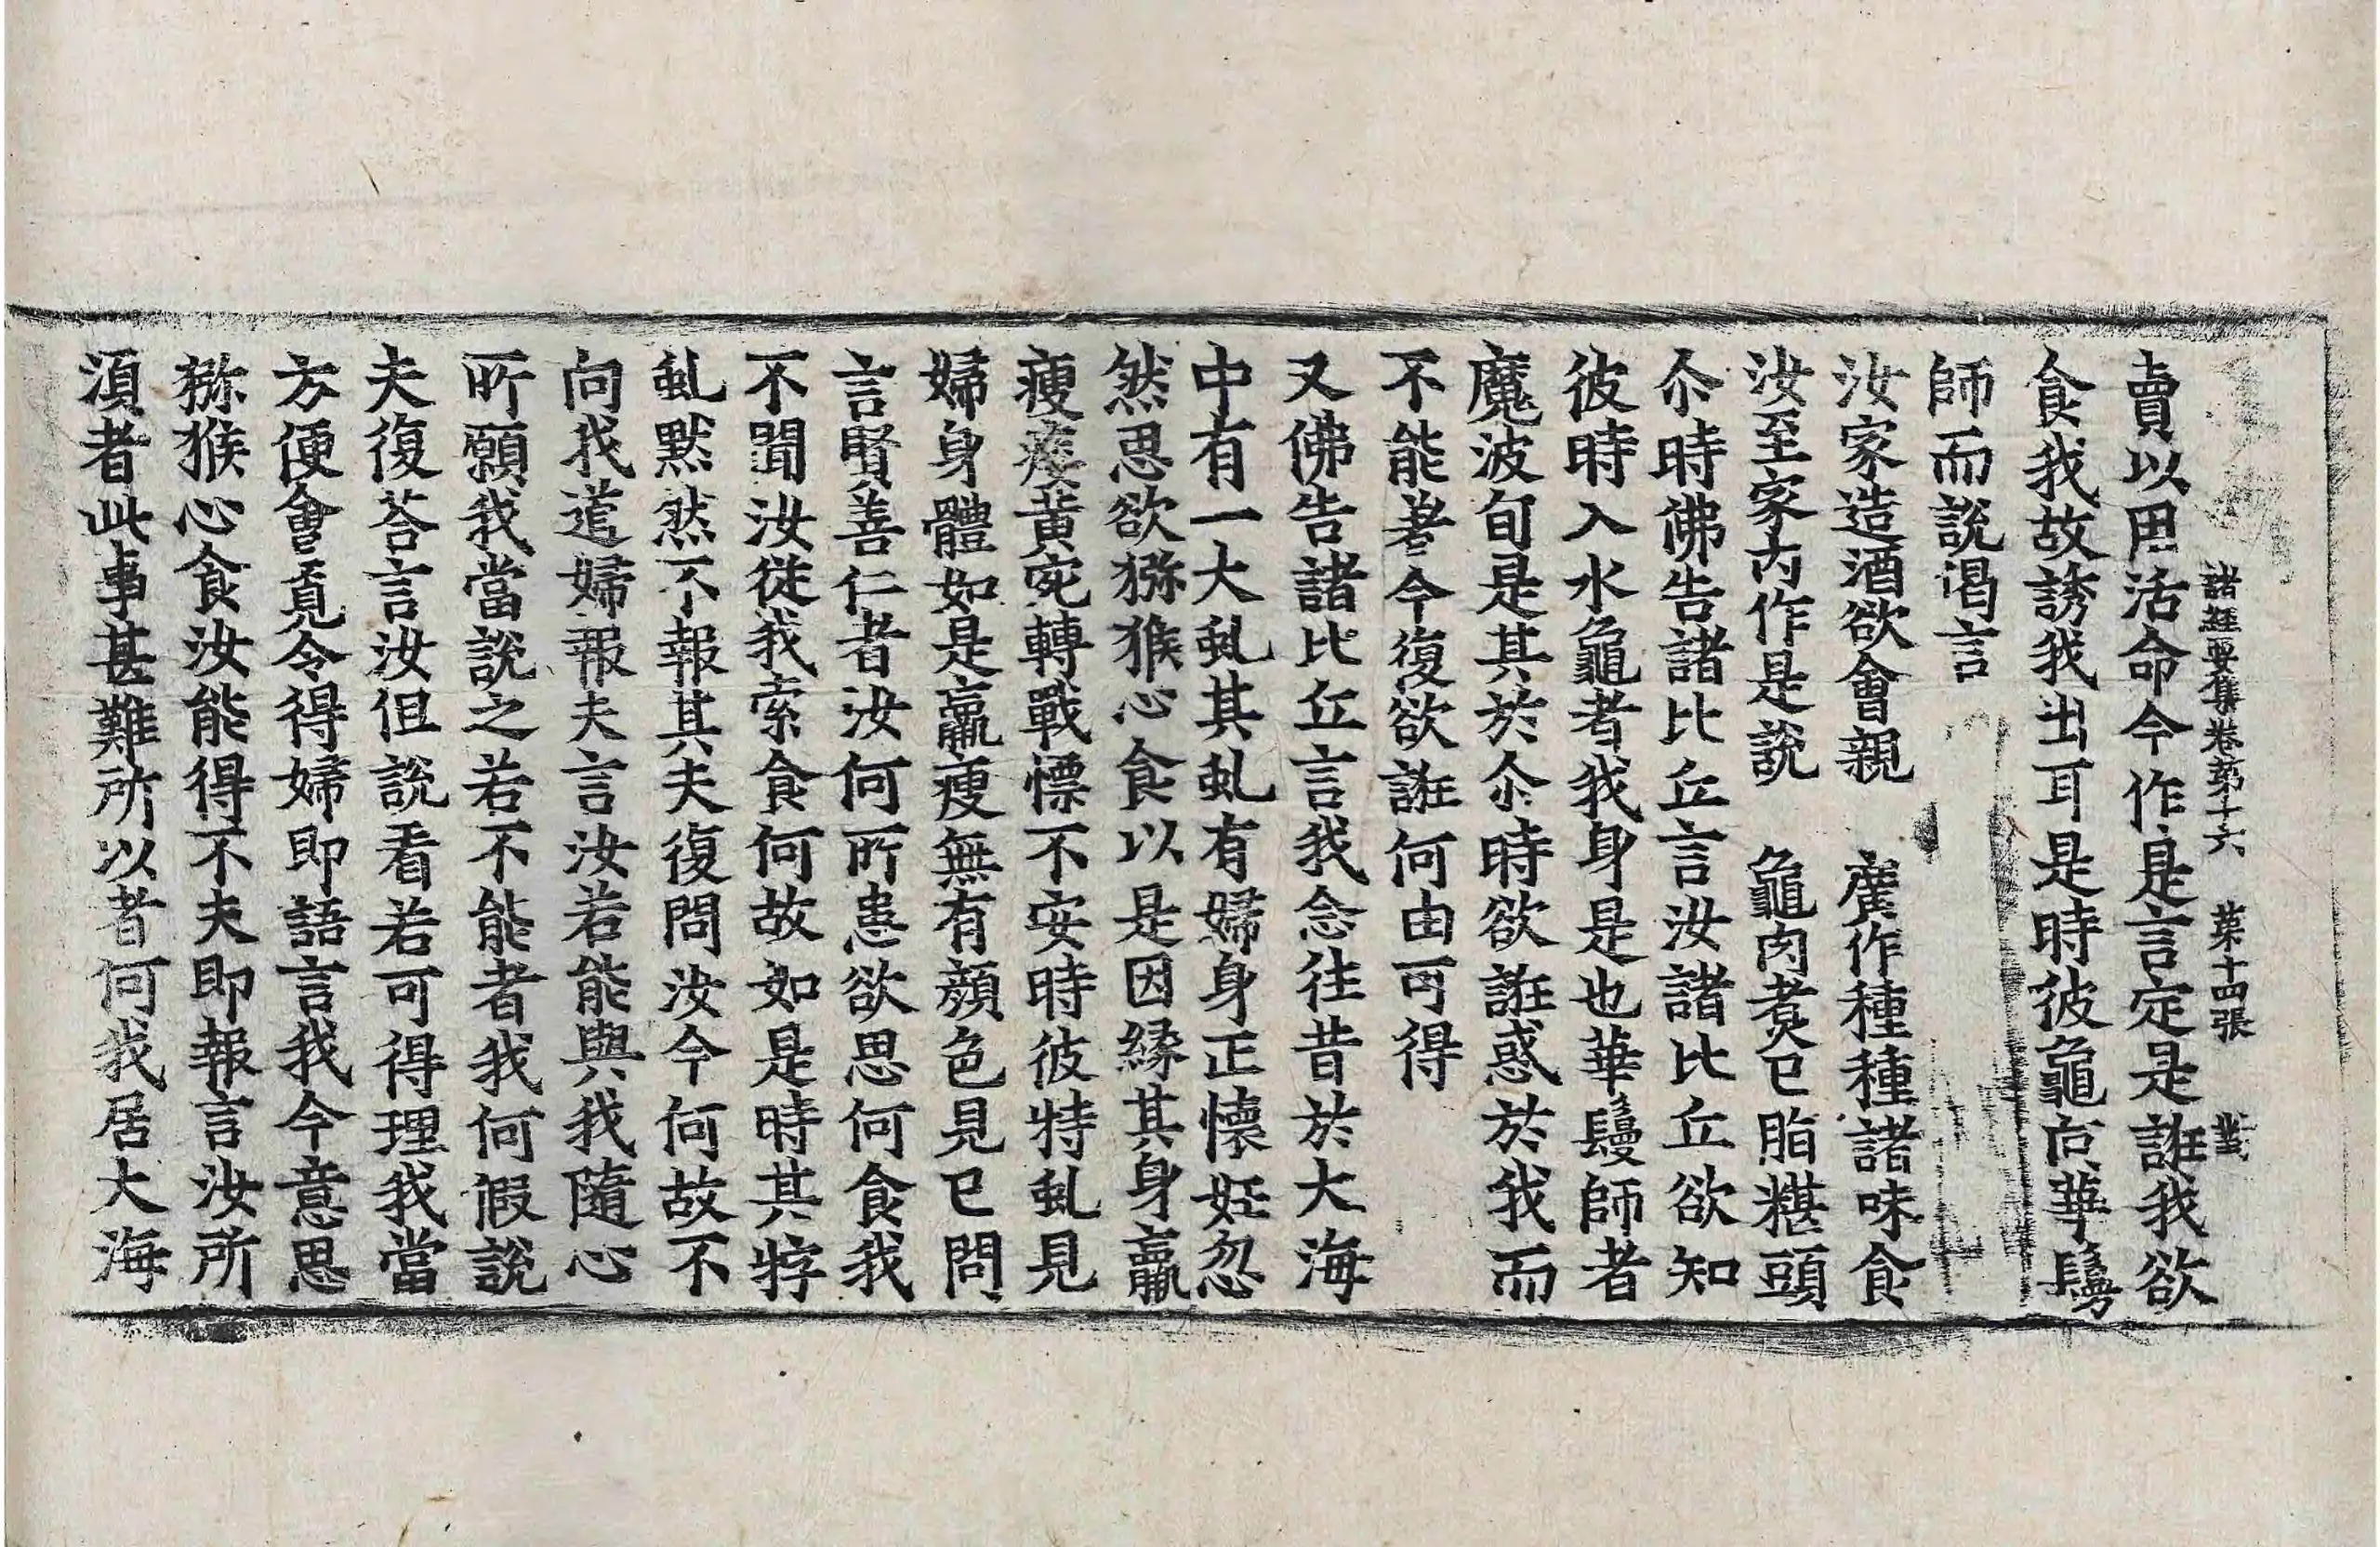 諸經要集卷第十六 第十四張
賣以用活命今作是言定是誑我欲
食我故誘我出耳是時彼龜向華鬘
師而說偈言
汝家造酒欲會親 廣作種種諸味食
汝至家內作是說 龜肉煮已脂糂頭
尒時佛告諸比丘言汝諸比丘欲知
彼時入水龜者我身是也華鬘師者
魔波旬是其於尒時欲誑惑於我而
不能著今復欲誑何由可得
又佛告諸比丘言我念往昔於大海
中有一大虬其虬有婦身正懷妊忽
然思欲獼猴心食以是因緣其身羸
瘦痿黃宛轉戰慄不安時彼特虬見
婦身體如是羸瘦無有顏色見已問
言賢善仁者汝何所患欲思何食我
不聞汝從我索食何故如是時其牸
虬默然不報其夫復問汝今何故不
向我道婦報夫言汝若能與我隨心
所願我當說之若不能者我何假說
夫復荅言汝但說看若可得理我當
方便會覔令得婦即語言我今意思
猕猴心食汝能得不夫即報言汝所
湏者此事甚難所以者何我居大海